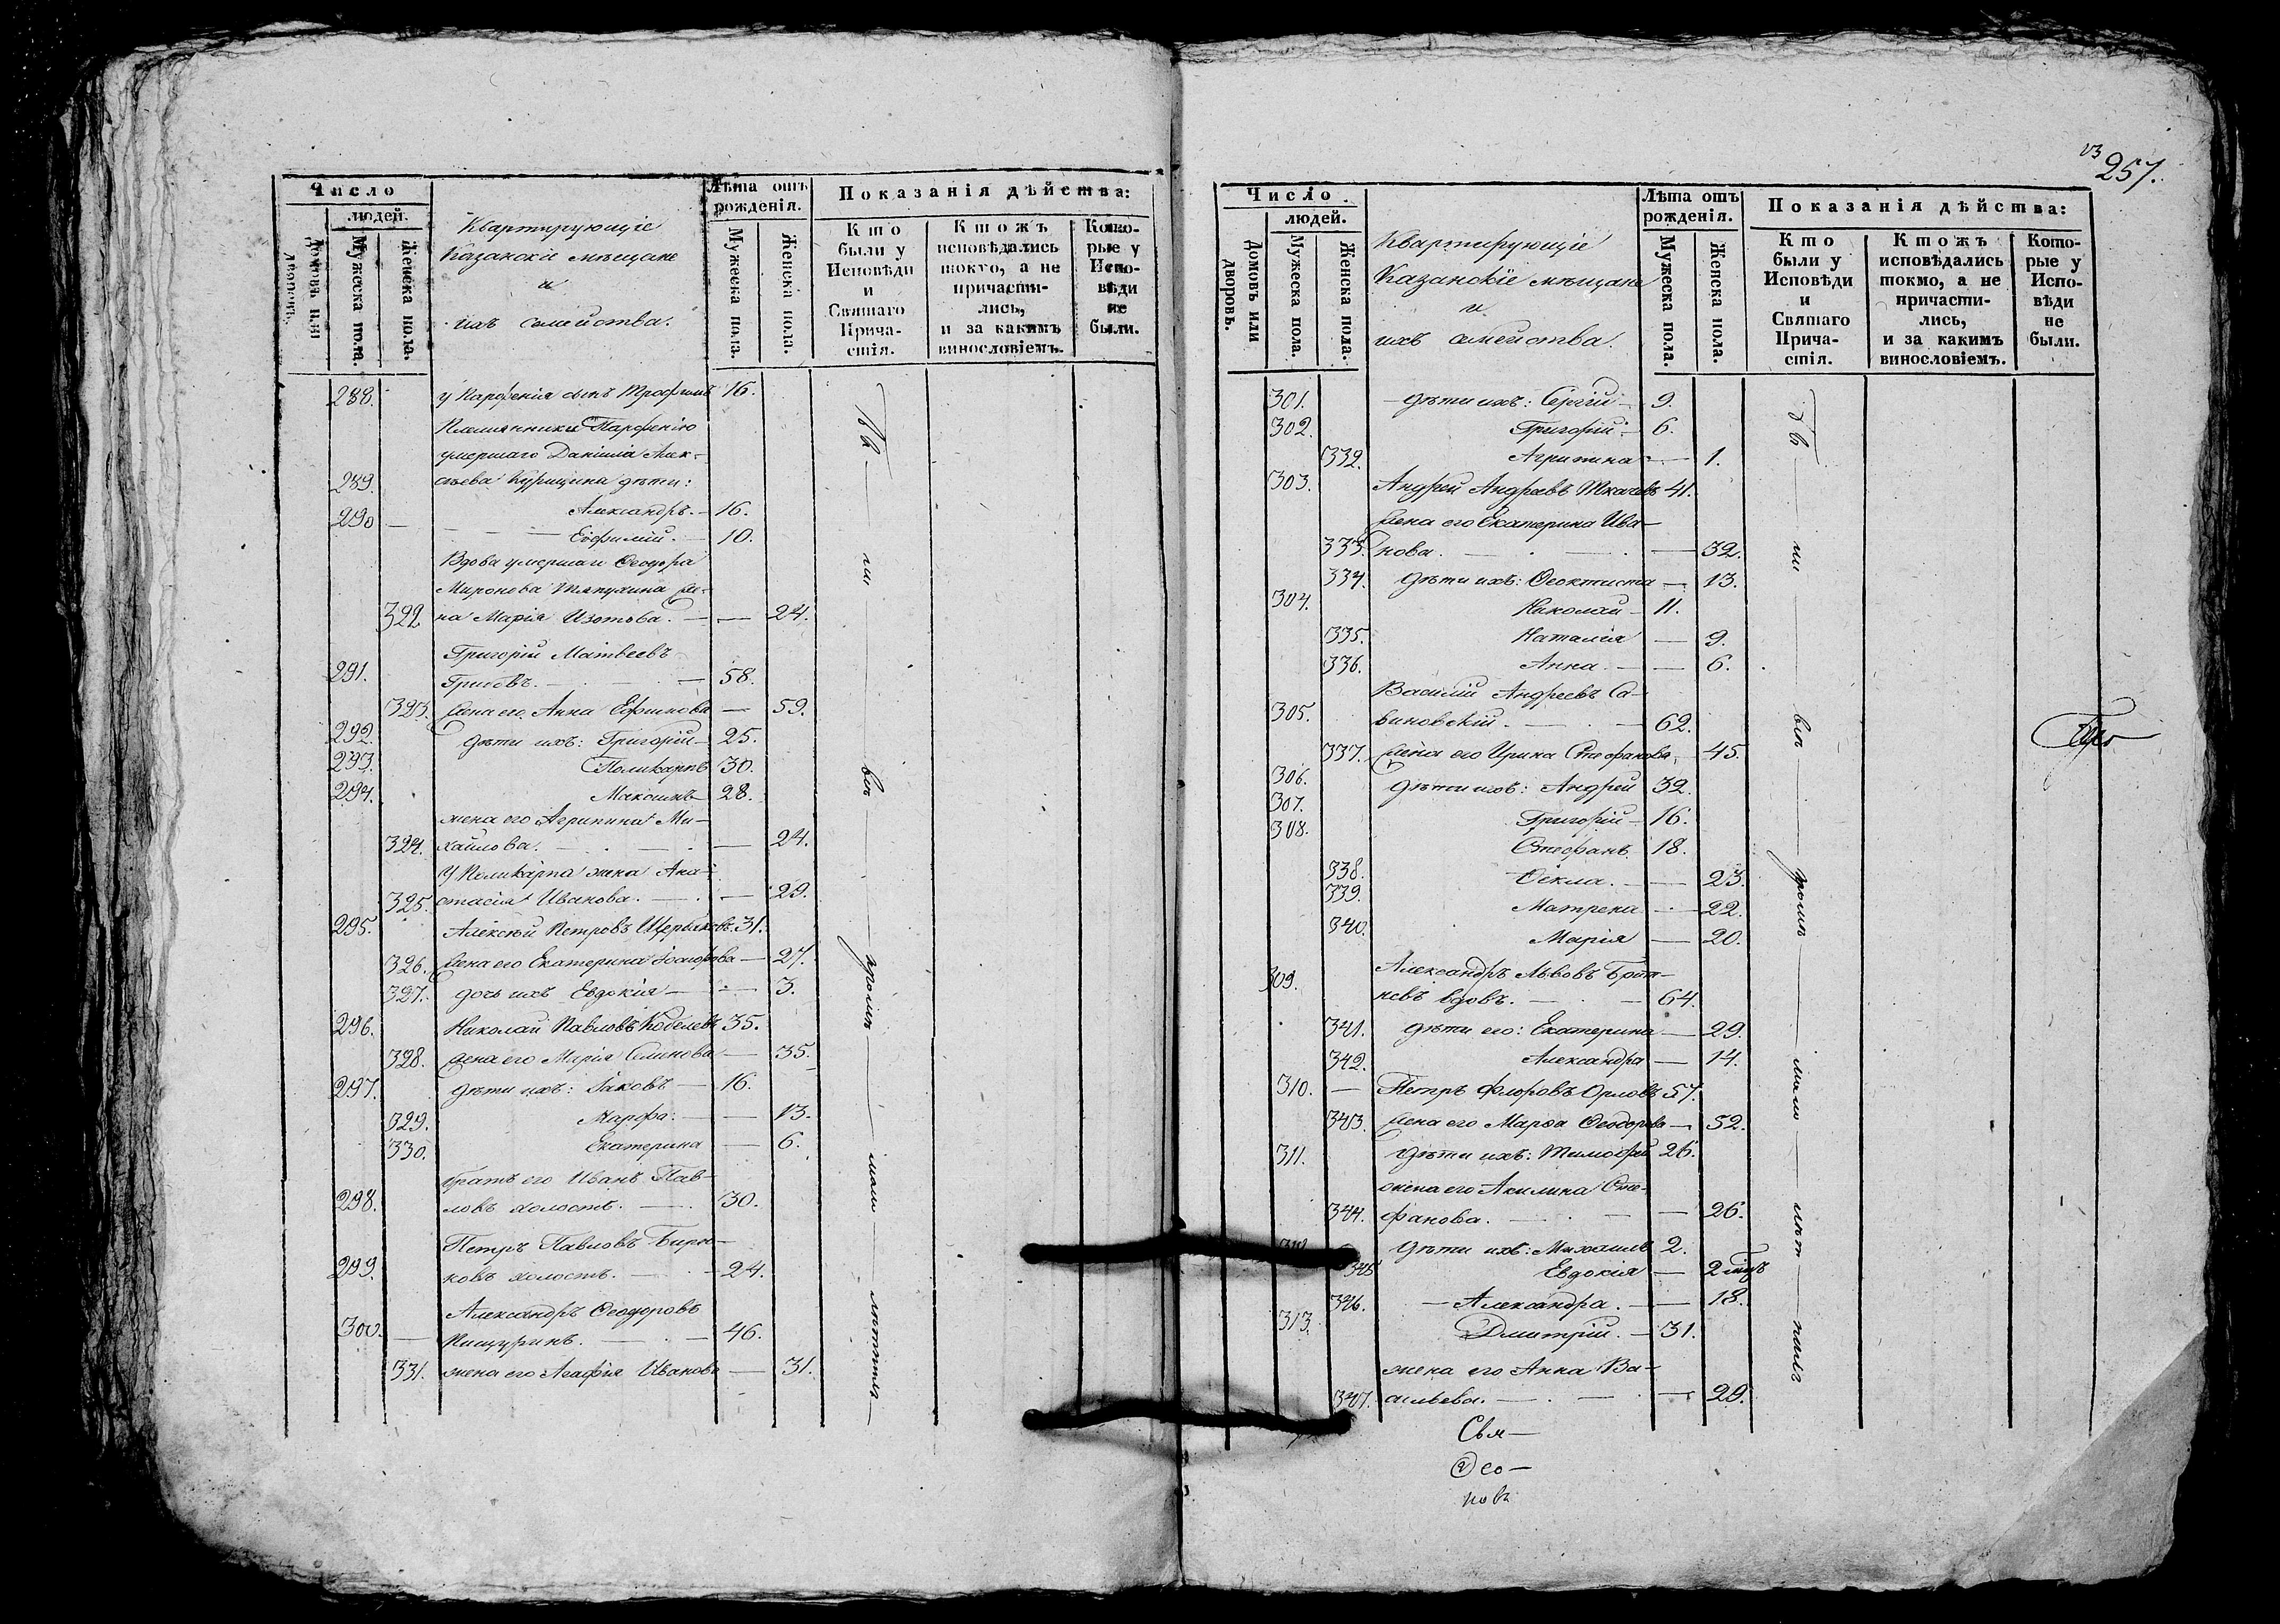 Число
людей.
Домовъ или дворовъ.
Мужеска пола.
Женска пола.
Квартирующіе
Казанскіе мѣщане
и
ихъ семейства.
Лѣта отъ рожденія.
Мужеска пола.
Женска пола.
Показанія дѣйства:
Кто были у Исповѣди и Святаго Прича-стія.
Ктожъ исповѣдались токмо, а не причасти-лись, и за какимъ винословіемъ.
Кото-рые у Испо-вѣди не были.
288. у Парфенія сынъ Трофимъ 16.
Племянники Парфенію
умершаго Даніила Алек-
289. сѣева Курицина дѣти:
Александръ. — 16.
290 — Евфимій. — 10.
Вдова умершаго Ѳеодора
Миронова Тяпухина же-
322. на Марія Изотова. — 24.
Григорій Матвеевъ
291. — 58.
323. Жена его Анна Ефимова — 59.
292. дѣти ихъ: Григорій — 25.
293. Поликарпъ 30.
294. Максимъ — 28.
жена его Агрипина Ми-
324. хайлова. — 24.
У Поликарпа жена Ана-
325. стасія Иванова. — 29.
295. Алексѣй Петровъ Щербаковъ 31.
326. Жена его Екатерина — 27.
327. дочь ихъ Евдокія — 3.
296. Николай Павловъ Кобелевъ 35.
328. Жена его Марія — 35.
297. дѣти ихъ: Іаковъ — 16.
329. Марфа. — 13.
330. Екатерина — 6.
братъ его Иванъ Пав-
298. ловъ холостъ. — 30.
Петръ Павловъ Бирю-
299. ковъ холостъ. — 24.
Александръ Ѳеодоровъ
300. — Пищуринъ. — 46.
331. жена его Агафія Иванова — 31.
257.
Число
людей.
Домовъ или дворовъ.
Мужеска пола.
Женска пола.
Квартирующіе
Казанскіе мѣщане
и
ихъ семейства.
Лѣта отъ рожденія.
Мужеска пола.
Женска пола.
Показанія дѣйства:
Кто были у Исповѣди и Святаго Прича-стія.
Ктожъ исповѣдались токмо, а не причасти-лись, и за какимъ винословіемъ.
Кото-рые у Испо-вѣди не были.
301. — дѣти ихъ: Сергій — 9.
302. Григорій — 6.
332. Агрипина — 1.
303. Андрей Андреевъ Ткачевъ 41.
Жена его Екатерина Ива-
333. нова. — 32.
334. дѣти ихъ: Ѳеоктиста — 13.
304. Николай — 11.
335. Наталія — 9.
336. Анна. — 6.
Василій Андреевъ Са-
305. виновскій. — 62.
337. Жена его Ирина Стефанова — 45.
306. дѣти ихъ: Андрей 32.
307. Григорій — 16.
308. Стефанъ 18.
338. Ѳекла. — 23.
339. Матрена — 22.
340. Марія — 20.
Александръ Львовъ
309. вдовъ. — 64.
341. дѣти его: Екатерина — 29.
342. Александра — 14.
310. — Петръ Флоровъ Орловъ 57.
343. Жена его Марѳа Ѳеодорова — 52.
311. дѣти ихъ: Тимофей 26.
жена его Акилина Сте-
344. фанова. — 26.
312. дѣти ихъ: Михаилъ 2.
345 Евдокія — 2
346. — Александра. — 18.
313. Дмитрій. — 31.
жена его Анна Ва-
347. сильева. — 29.
Свя-
Ѳео-
новъ